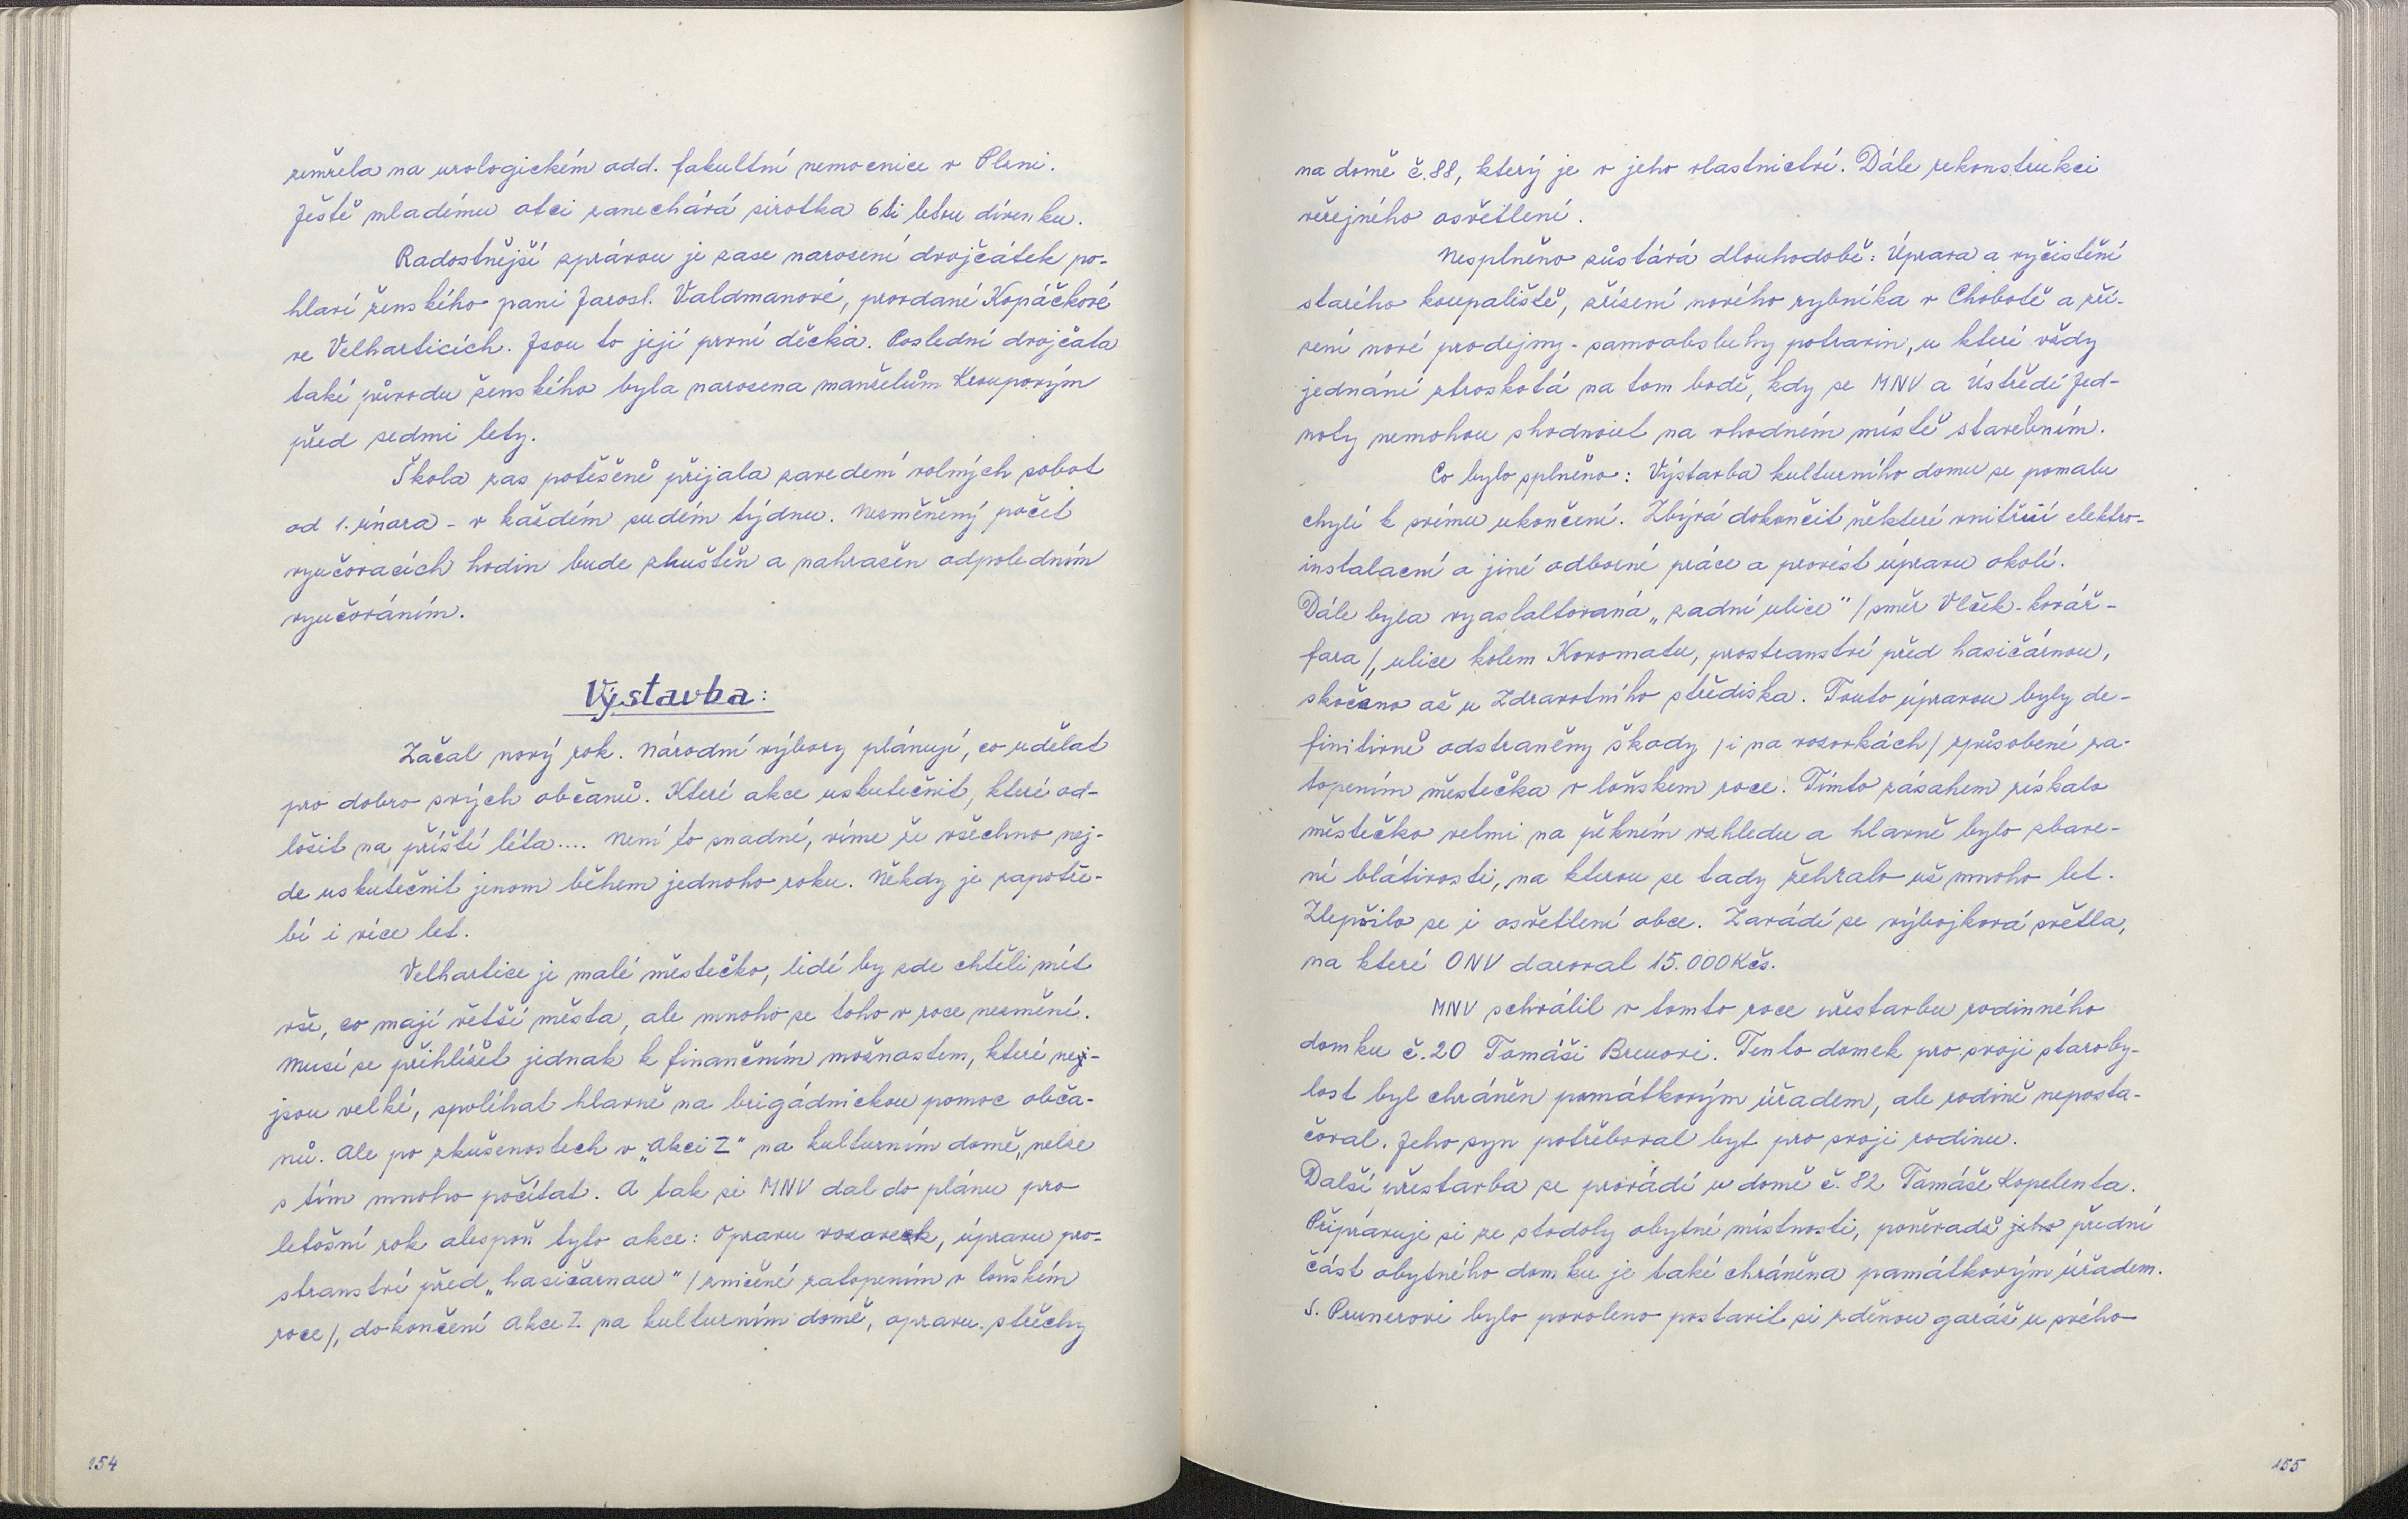 zemřela na urologickém odd. fakultní nemocnice v Plzni.
Ještě mladému otci zanechává sirotka 6ti letou dívenku.
Radostnější zprávou je zase narození dvojčátek po-
hlaví ženského paní Jarosl. Valdmanové, provdané Kopáčkové
ve Velharticích. Jsou to její první děcka. Poslední dvojčata
také původu ženského byla narozena manželům Krouporým
před sedmi lety.
Škola zas potěšeně přijala zavedení volných sobot
od 1. února - v každém sudém týdnu. Nezměněný počet
vyučovacích hodin bude zhuštěn a nahrazen odpoledním
vyučováním.
Výstavba:
Začal nový rok. Národní výbory plánují, co udělat
pro dobro svých občanů. Které akce uskutečnit, které od-
ložit na příští léta.... Není to snadné, víme že všechno nej-
de uskutečnit jenom během jednoho roku. Někdy je zapotře-
bí i více let.
Velhartice je malé městečko, lidé by zde chtěli mít
vše, co mají větší města, ale mnoho se toho v roce nezmění.
Musí se přihlížet jednak k finančním možnostem, které nej-
jsou velké, spoléhat hlavně na brigádnickou pomoc obča-
nů. Ale po zkušenostech v „Akci Z" na kulturním domě, nelze
s tím mnoho počítat. A tak si MNV dal do plánu pro
letošní rok alespoň tyto akce: Opravu vozovek, úpravu pro-
stranství před „hasičárnou" /zničené zatopením v loňském
roce/, dokončení Akce Z na kulturním domě, opravu střechy
154
na domě č.88, který je v jeho vlastnictví. Dále rekonstrukci
veřejného osvětlení.
Nesplněno zůstává dlouhodobě: Úprava a vyčistění
starého koupaliště, zřízení nového rybníka v Chobotě a zří-
zení nové prodejny - samoobsluhy potravin, u které vždy
jednání ztroskotá na tom bodě, kdy se MNV a Ústředí Jed-
noty nemohou shodnout na vhodném místě stavebním.
Co bylo splněno: Výstavba kulturního domu se pomalu
chýlí k svému ukončení. Zbývá dokončit některé vnitřní elektro-
instalacní a jiné odborné práce a provést úpravu okolí.
Dále byla vyasfaltovaná „zadní ulice" /směr Vlček - kovář -
fara/, ulice kolem Kovomatu, prostranství před hasičárnou,
skočeno až u Zdravotního střediska. Touto úpravou byly de-
finitivně odstraněny škody /i na vozovkách/ způsobené za-
topením městečka v loňskem roce. Tímto zásahem získalo
městečko velmi na pěkném vzhledu a hlavně bylo zbave-
né blátivosti, na kterou se tady žehralo už mnoho let.
Zlepšilo se i osvětlení obce. Zavádí se výbojková světla,
na které ONV daroval 15.000 Kčs.
MNV schválil v tomto roce přestavbu rodinného
domku č.20 Tomáši Breuovi. Tento domek pro svoji staroby-
lost byl chráněn památkovým úřadem, ale rodině neposta-
čoval. Jeho syn potřeboval byt pro svoji rodinu.
Další přestavba se provádí u domě č.82 Tomáše Kopelenta.
Připravuje si ze stodoly obytné místnosti, poněvadž jeho přední
část obytného domku je také chráněna památkovým úřadem.
S. Prunerovi bylo povoleno postavit si zděnou garáž u svého
155